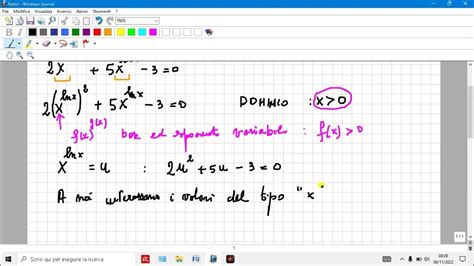 Nota1 - Windows Journal
File Modifica Visualizza Inserisci Azioni Strumenti ?
150%
2x + 5x - 3 = 0
2(x^{ln x})^2 + 5x^{ln x} - 3 = 0 DOMINIO : x > 0
f(x)^{g(x)} base ed esponente variabile : f(x) > 0
x^{ln x} = u : 2u^2 + 5u - 3 = 0
A noi interessano i valori del tipo "x
1/1
Scrivi qui per eseguire la ricerca
08:08
06/11/2022